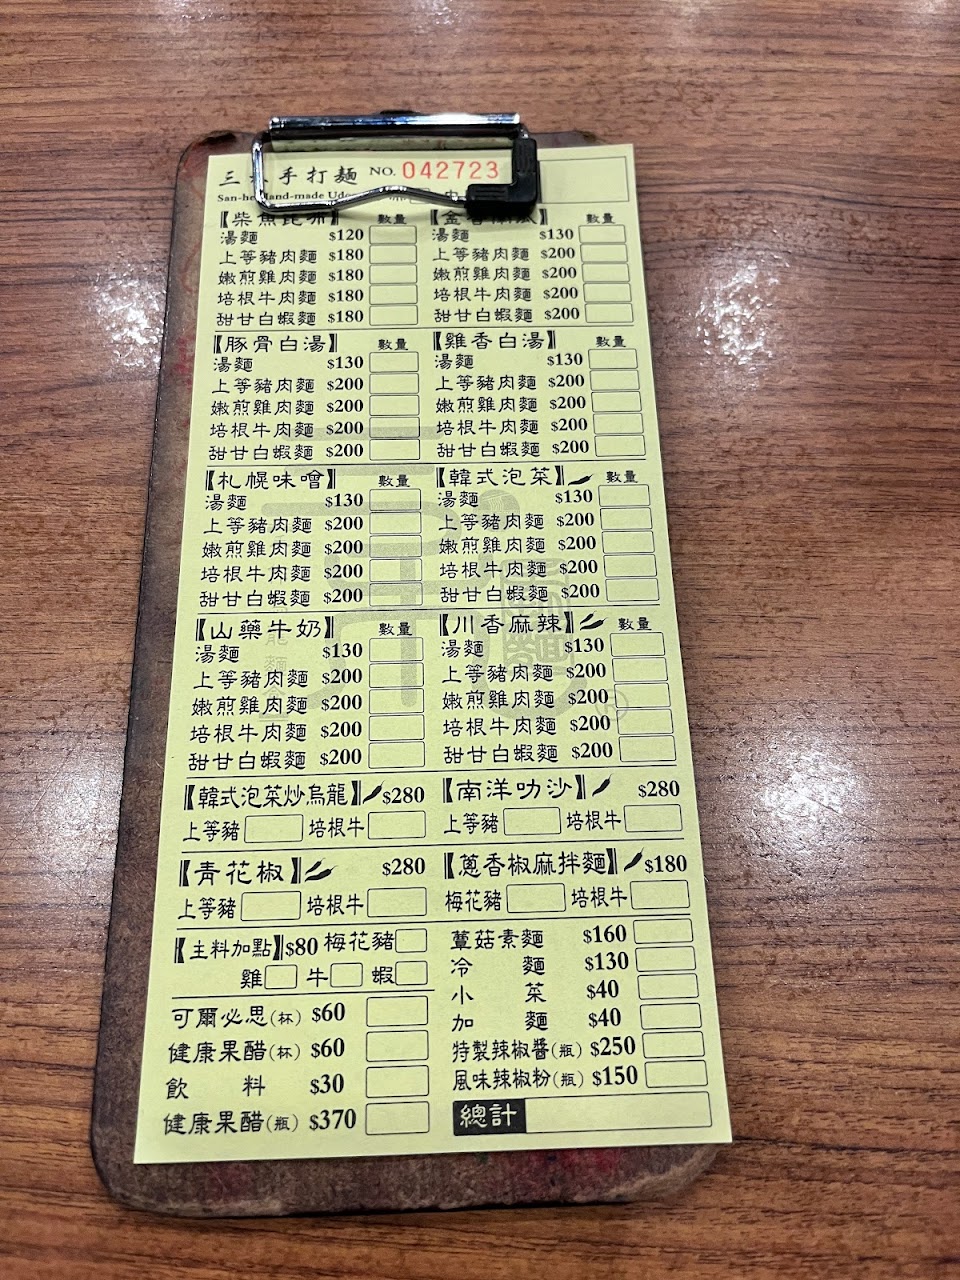 三 手打麵 NO. 042723
San-he Hand-made Udo
【柴魚昆布】 數量
湯麵 $120
上等豬肉麵 $180
嫩煎雞肉麵 $180
培根牛肉麵 $180
甜甘白蝦麵 $180
【金香南瓜】 數量
湯麵 $130
上等豬肉麵 $200
嫩煎雞肉麵 $200
培根牛肉麵 $200
甜甘白蝦麵 $200
【豚骨白湯】 數量
湯麵 $130
上等豬肉麵 $200
嫩煎雞肉麵 $200
培根牛肉麵 $200
甜甘白蝦麵 $200
【雞香白湯】 數量
湯麵 $130
上等豬肉麵 $200
嫩煎雞肉麵 $200
培根牛肉麵 $200
甜甘白蝦麵 $200
【札幌味噌】 數量
湯麵 $130
上等豬肉麵 $200
嫩煎雞肉麵 $200
培根牛肉麵 $200
甜甘白蝦麵 $200
【韓式泡菜】 數量
湯麵 $130
上等豬肉麵 $200
嫩煎雞肉麵 $200
培根牛肉麵 $200
甜甘白蝦麵 $200
【山藥牛奶】 數量
湯麵 $130
上等豬肉麵 $200
嫩煎雞肉麵 $200
培根牛肉麵 $200
甜甘白蝦麵 $200
【川香麻辣】 數量
湯麵 $130
上等豬肉麵 $200
嫩煎雞肉麵 $200
培根牛肉麵 $200
甜甘白蝦麵 $200
【韓式泡菜炒烏龍】 $280
上等豬 培根牛
【南洋叻沙】 $280
上等豬 培根牛
【青花椒】 $280
上等豬 培根牛
【蔥香椒麻拌麵】 $180
梅花豬 培根牛
【主料加點】 $80 梅花豬
雞 牛 蝦
可爾必思(杯) $60
健康果醋(杯) $60
飲料 $30
健康果醋(瓶) $370
蕈菇素麵 $160
冷麵 $130
小菜 $40
加麵 $40
特製辣椒醬(瓶) $250
風味辣椒粉(瓶) $150
總計